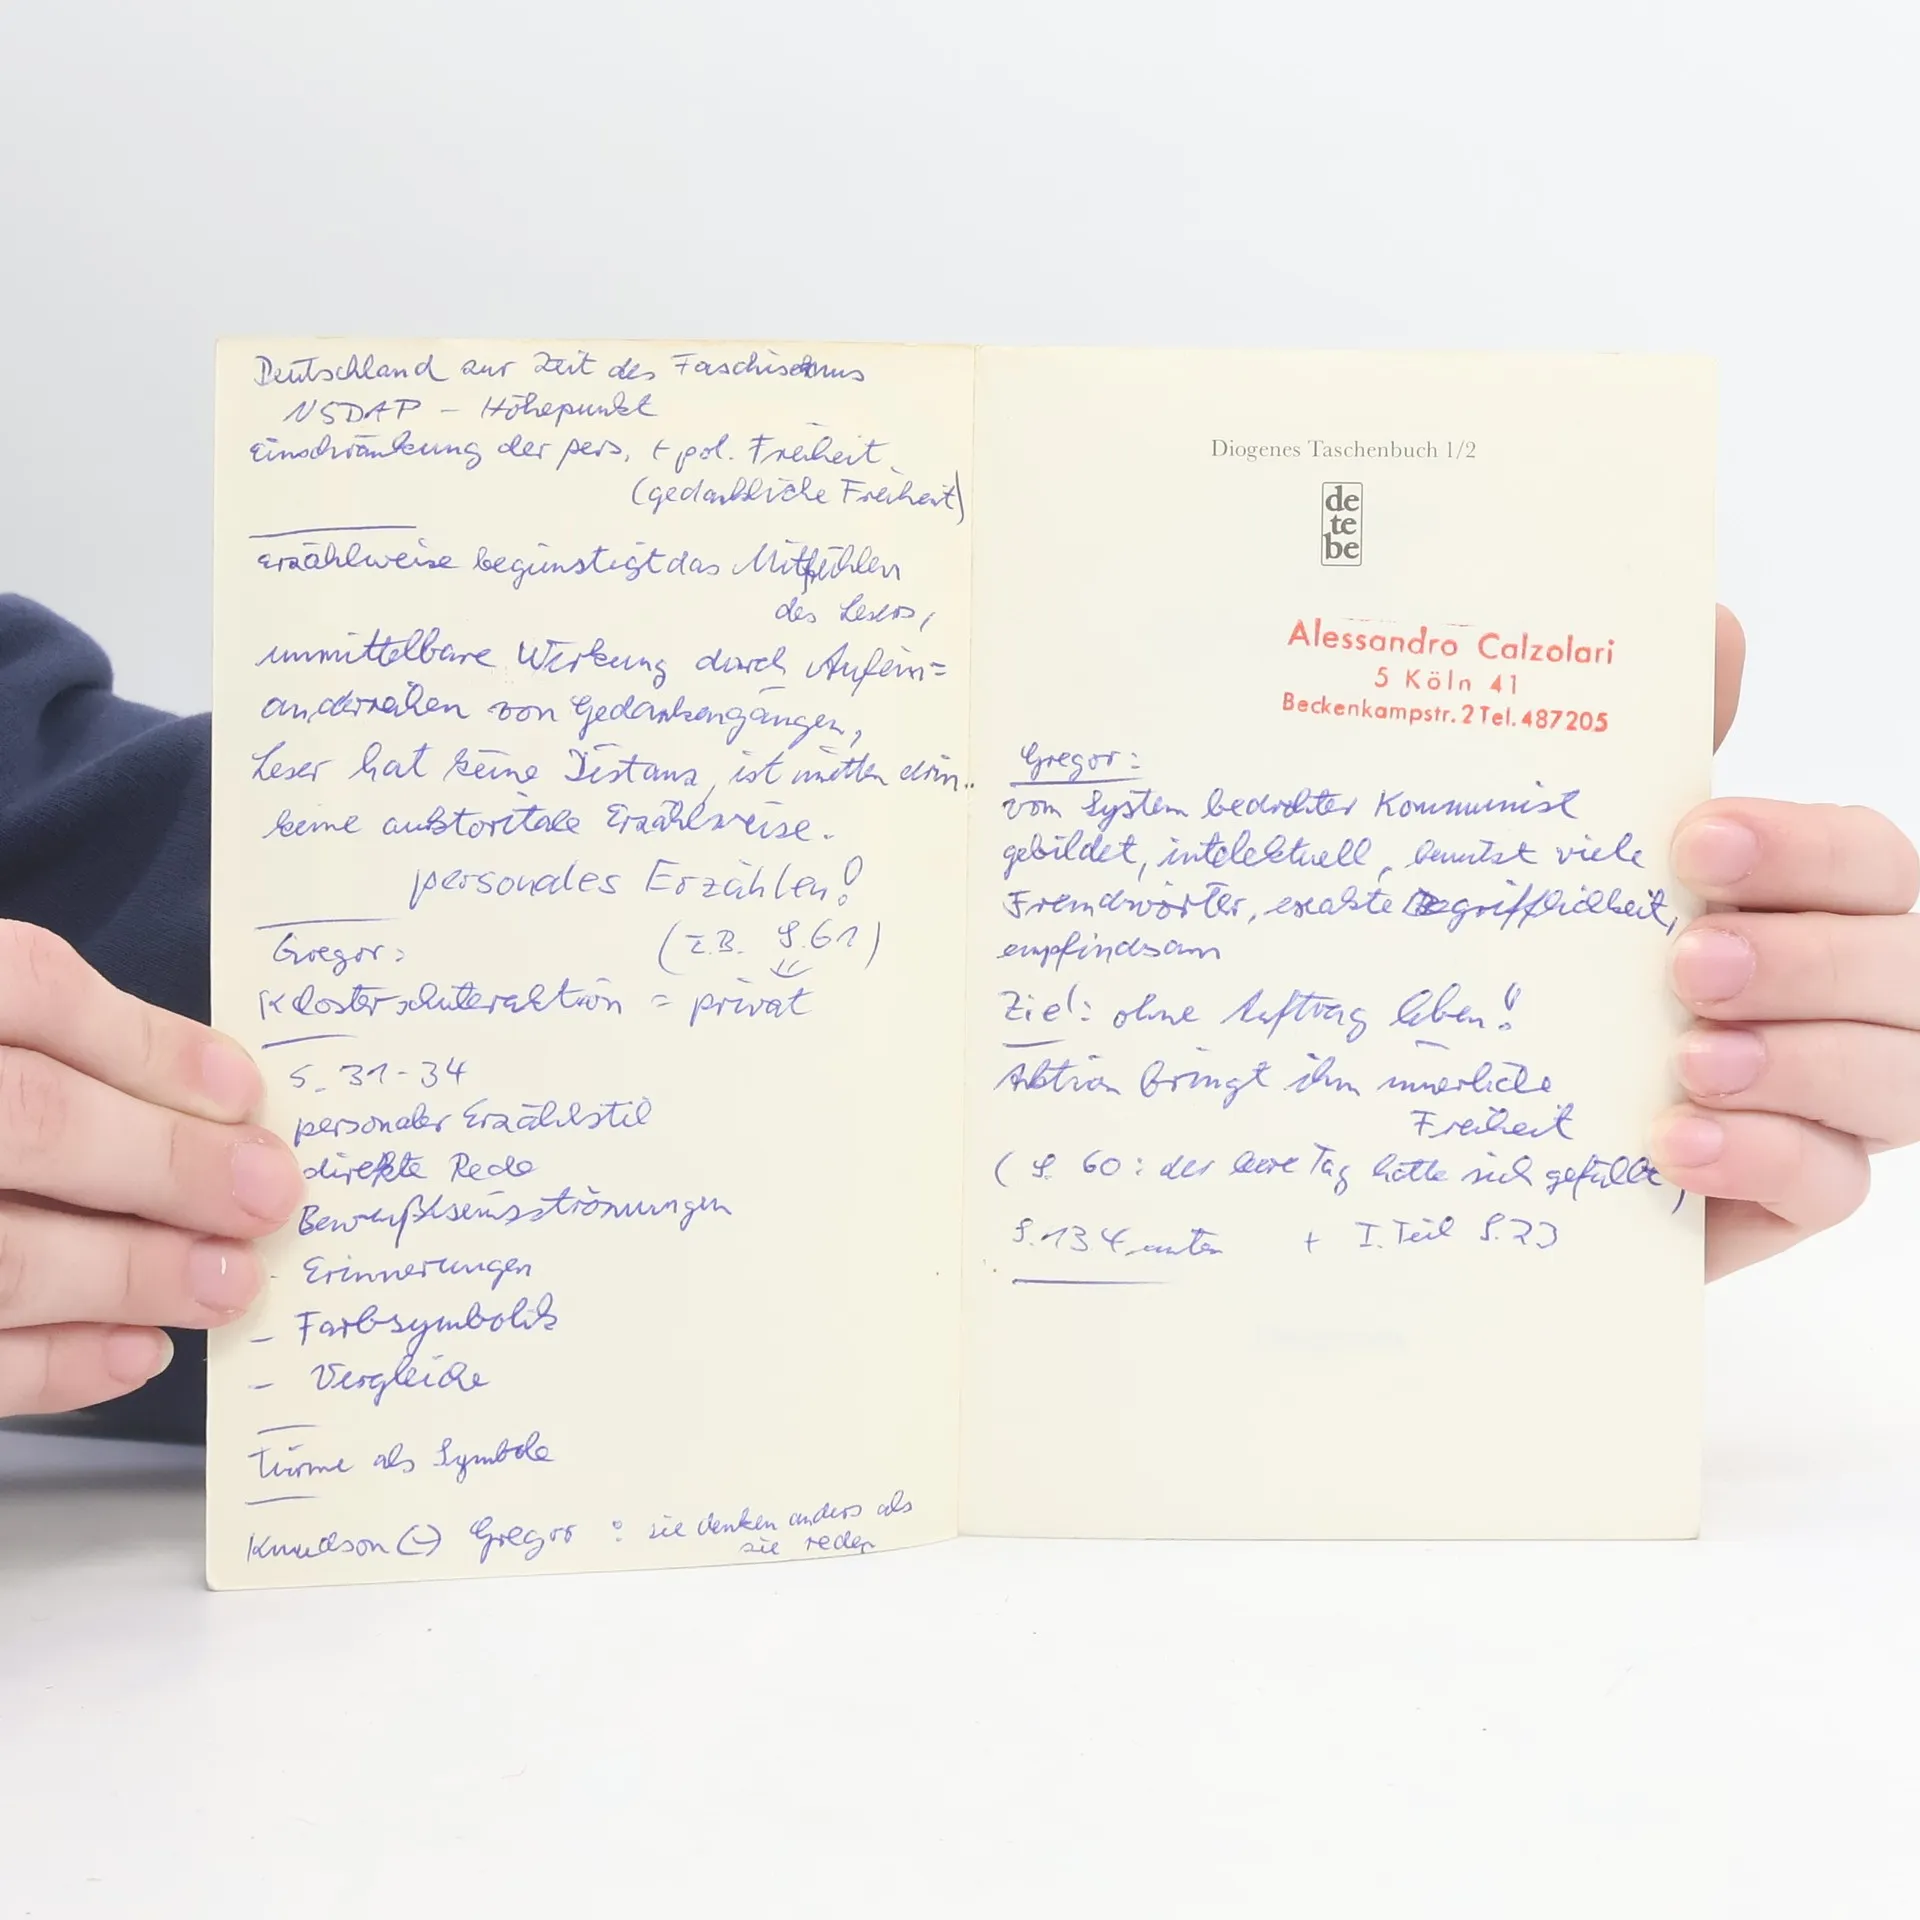 Deutschland zur Zeit des Faschismus
NSDAP – Höhepunkt
Einschränkung der pers. + pol. Freiheit.
(gedankliche Freiheit)
Erzählweise begünstigt das Mitfühlen
des Lesers,
unmittelbare Wirkung durch Aufein=
anderreihen von Gedankengängen,
Leser hat keine Distanz, ist mitten drin..
keine auktoriale Erzählweise.
personales Erzählen!
Gregor: (z.B. S. 61)
Klosterschüleraktion = privat
S. 31-34
personaler Erzählstil
direkte Rede
Bewußtseinsströmungen
- Erinnerungen
- Farbsymbolik
- Vergleiche
Türme als Symbole
Knudson (-) Gregor : sie denken anders als
sie reden
Diogenes Taschenbuch 1/2
de
te
be
Alessandro Calzolari
5 Köln 41
Beckenkampstr. 2 Tel. 487205
Gregor:
vom System bedrohter Kommunist
gebildet, intelektuell, benutzt viele
Fremdwörter, exakte Begrifflichkeit,
empfindsam
Ziel: ohne Auftrag leben!
Aktion bringt ihm innerliche
Freiheit
(S. 60: der leere Tag hatte sich gefüllt)
S. 134 unten + I. Teil S. 23